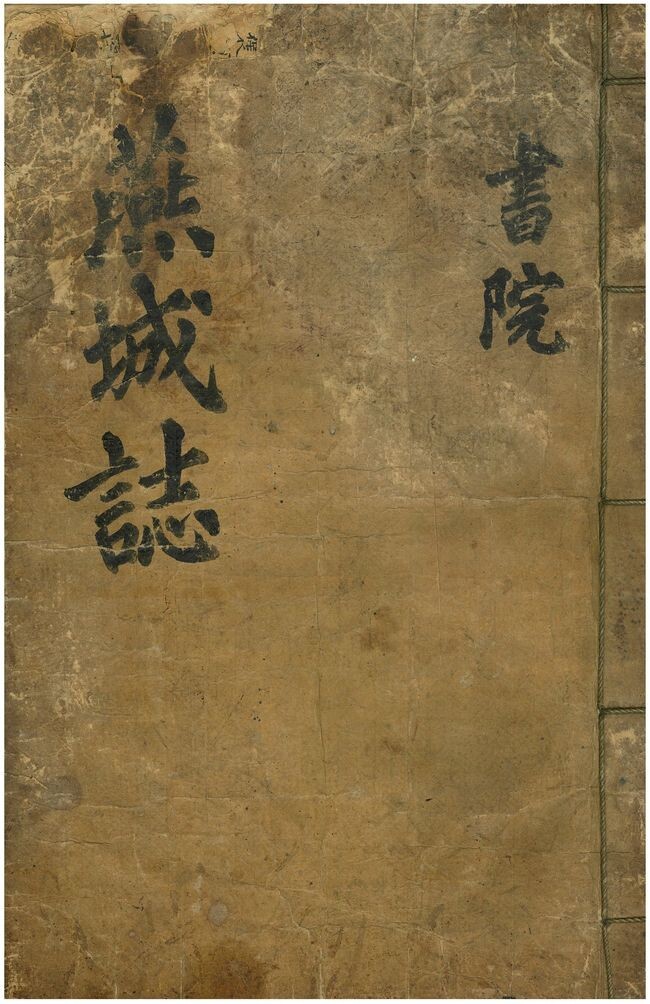 書院
燕城誌